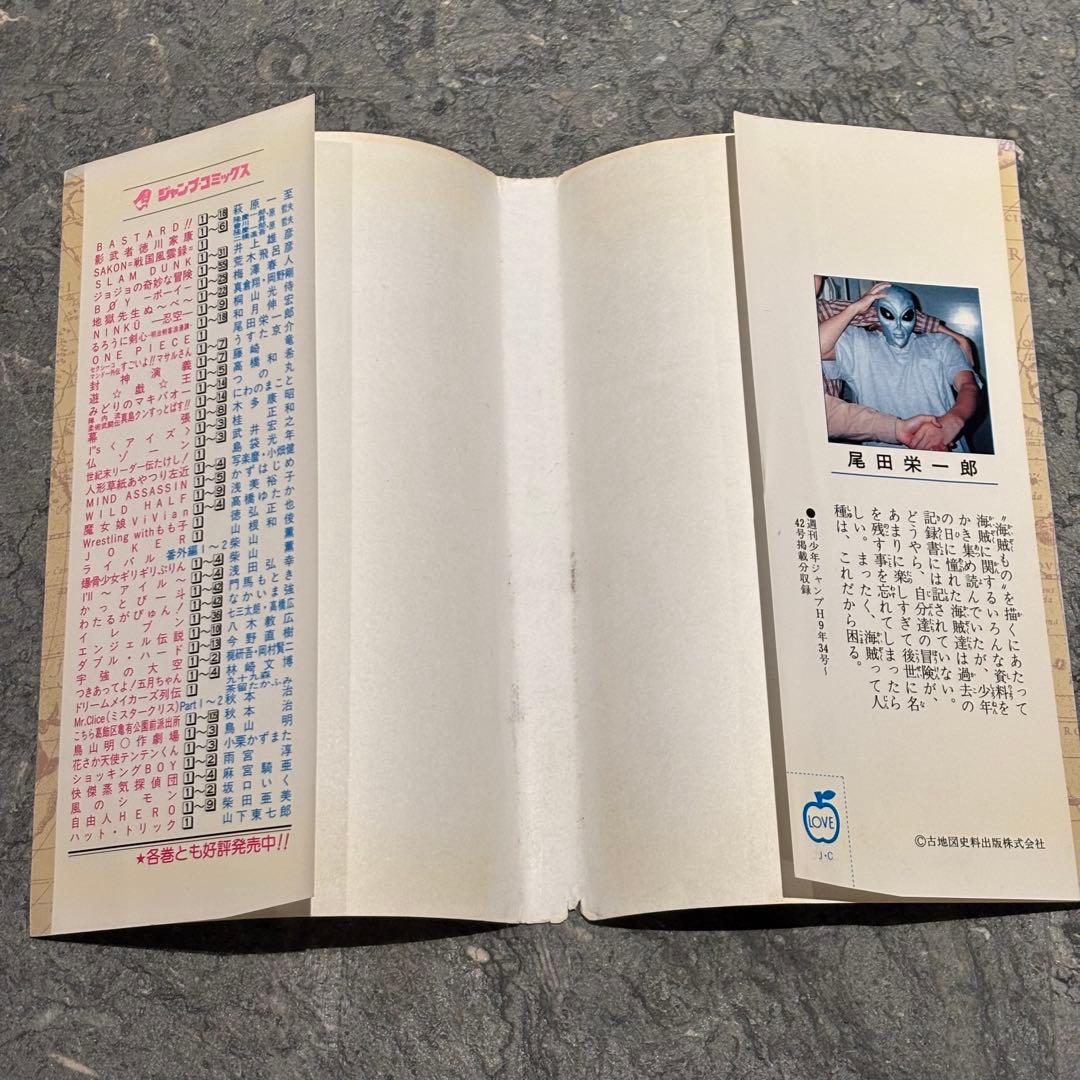 ジャンプ・コミックス
BASTARD!! 萩原一至
影武者徳川家康
SAKON=戦国風雲録=
SLAM DUNK 井上雄彦
ジョジョの奇妙な冒険 荒木飛呂彦
BØY —ボーイ— 梅澤春人
地獄先生ぬ〜べ〜 真倉翔・岡野剛
NINKŪ —忍空— 桐山光侍
るろうに剣心—明治剣客浪漫譚— 和月伸宏
ONE PIECE 尾田栄一郎
セクシーコマンドー外伝すごいよ!!マサルさん うすた京介
封神演義 藤崎竜
遊☆戯☆王 高橋和希
みどりのマキバオー つの丸
陣内流柔術武闘伝真島クンすっとばす!! にわのまこと
幕張 木多康昭
I"s〈アイズ〉 桂正和
仏ゾーン 武井宏之
世紀末リーダー伝たけし! 島袋光年
人形草紙あやつり左近 写楽麿・小畑健
MIND ASSASSIN かずはじめ
WILD HALF 浅美裕子
魔女娘ViVian 高橋ゆたか
Wrestling withもも子 徳弘正也
JOKER 山根和俊
ライバル 番外編1〜2 柴山薫
爆骨少女ギリギリぷりん 柴山薫
I'll 〜アイル〜 浅田弘幸
かっとび一斗 門馬もとき
わたるがぴゅん! なかいま強
イレブン 七三太朗・高橋広
エンジェル伝説 八木教広
ダブル・ハード 今野直樹
宇強の大空 梶研吾・岡村賢二
つきあってよ!五月ちゃん 林崎文博
ドリームメイカーズ列伝 九十九森 茶留たかふみ
Mr.Clice(ミスタークリス) Part 1〜2 秋本治
こちら葛飾区亀有公園前派出所 秋本治
鳥山明○作劇場 鳥山明
花さか天使テンテンくん 小栗かずまた
ショッキングBOY 雨宮淳
快傑蒸気探偵団 麻宮騎亜
風のシモン 坂口いく
自由人HERO 柴田亜美
ハット・トリック 山下東七郎
★各巻とも好評発売中!!
尾田栄一郎
“海賊もの”を描くにあたって
海賊に関するいろんな資料を
かき集め読んでいたが、少年
の日に憧れた海賊達は過去の
記録書には記されていない。
どうやら、自分達の冒険が、
あまりに楽しすぎて後世に名
を残す事を忘れてしまったら
しい。まったく、海賊って人
種は、これだから困る。
●週刊少年ジャンプH9年34号〜
42号掲載分収録
LOVE
J・C
©古地図史料出版株式会社